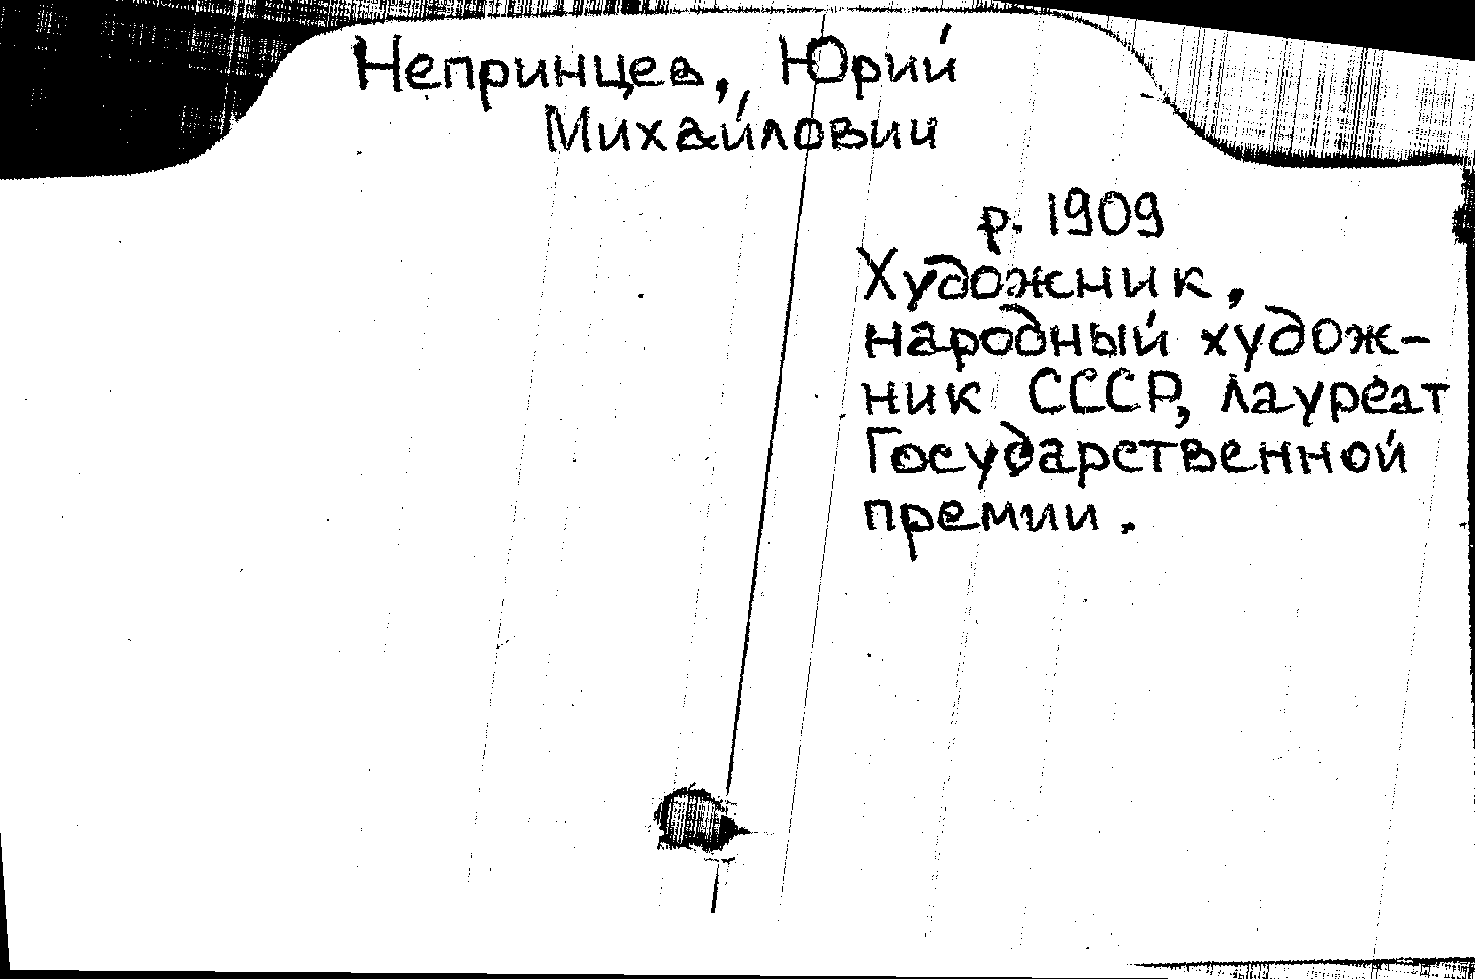 Непринцев, Юрий
Михайлович
р. 1909
Художник,
народный худож-
ник СССР, лауреат
Государственной
премии.